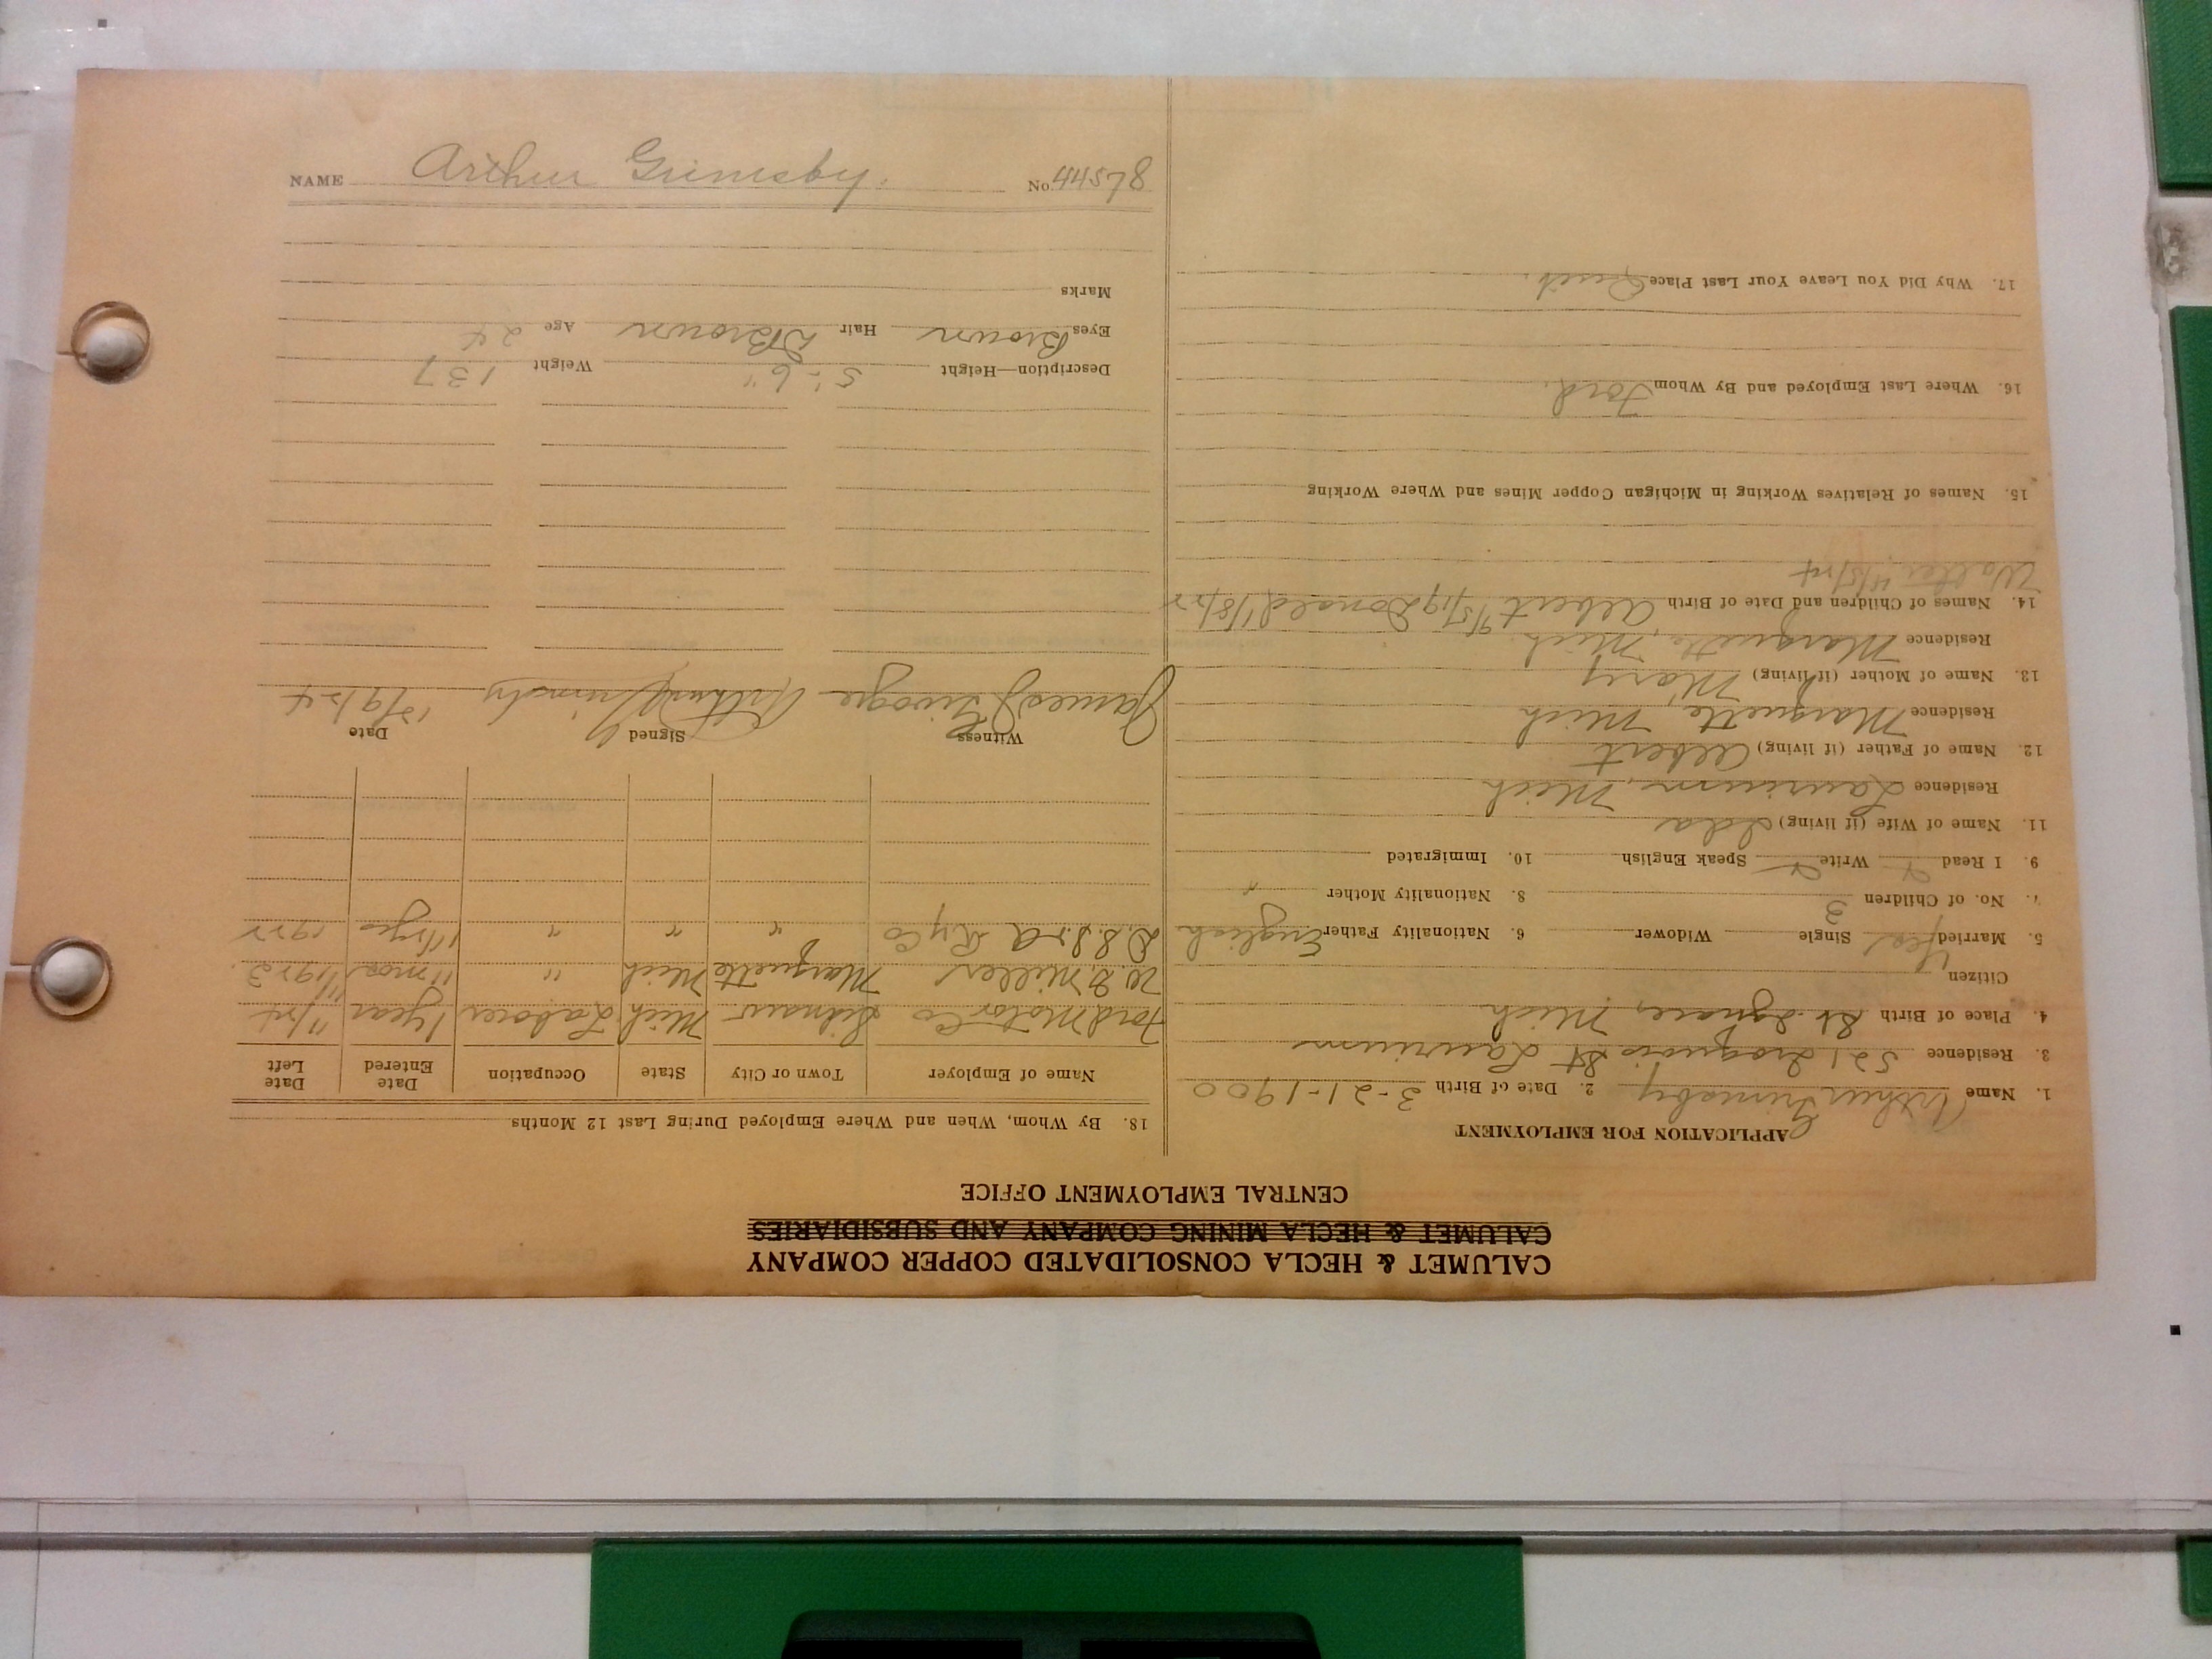 CALUMET & HECLA CONSOLIDATED COPPER COMPANY
CALUMET & HECLA MINING COMPANY AND SUBSIDIARIES
CENTRAL EMPLOYMENT OFFICE
APPLICATION FOR EMPLOYMENT
1. Name Arthur Grimsby 2. Date of Birth 3-21-1900
3. Residence 521 Iroquois St Laurium
4. Place of Birth St. Ignace, Mich
Citizen
5. Married Yes Single Widower 6. Nationality Father English
7. No. of Children 3 8. Nationality Mother "
9. I Read Write Speak English 10. Immigrated
11. Name of Wife (if living) Ida
Residence Laurium, Mich
12. Name of Father (if living) Albert
Residence Marquette, Mich
13. Name of Mother (if living) Mary
Residence Marquette, Mich.
14. Names of Children and Date of Birth Albert 9/5/19 Donald 1/8/22
Walter 4/5/24
15. Names of Relatives Working in Michigan Copper Mines and Where Working
16. Where Last Employed and By Whom Ford.
17. Why Did You Leave Your Last Place Quit.
18. By Whom, When and Where Employed During Last 12 Months
Name of Employer Town or City State Occupation Date Entered Date Left
Ford Motor Co Mich. Laborer 1 year 11/24
W. D. Miller Marquette Mich " 11 mos 11/1923.
D.S.S. & A Ry Co " " " 1922
Witness Signed Date
James Arthur Grimsby 12/9/24
Description—Height 5'-6" Weight 137
Eyes Brown Hair D Brown Age 24
Marks
NAME Arthur Grimsby. No. 44578